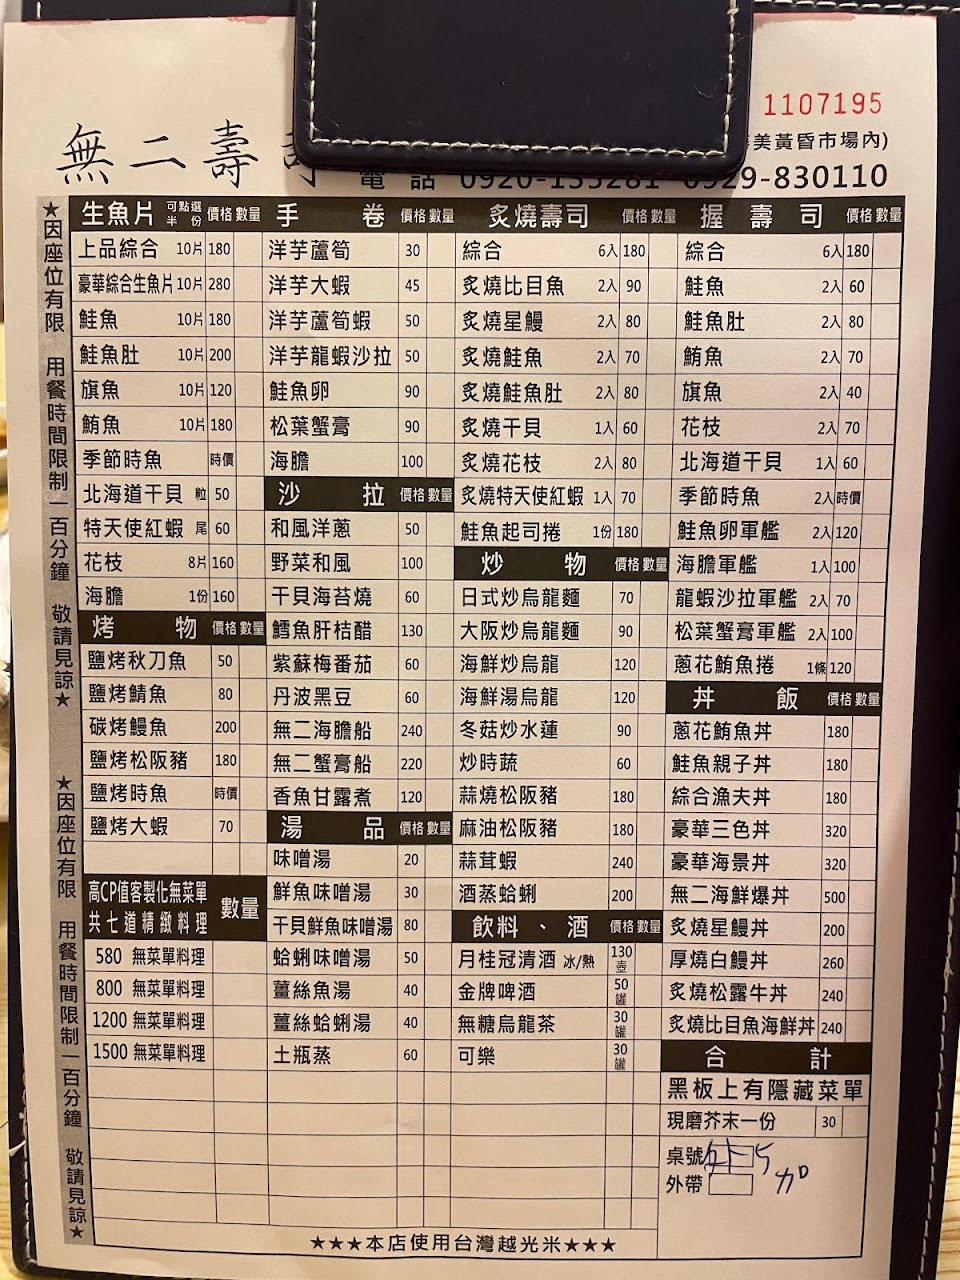 1107195
無二壽
美黃昏市場內)
電話 0920-155281 0929-830110
★因座位有限 用餐時間限制一百分鐘 敬請見諒★
★因座位有限 用餐時間限制一百分鐘 敬請見諒★
生魚片 可點選半份 價格 數量
上品綜合 10片 180
豪華綜合生魚片 10片 280
鮭魚 10片 180
鮭魚肚 10片 200
旗魚 10片 120
鮪魚 10片 180
季節時魚 時價
北海道干貝 粒 50
特天使紅蝦 尾 60
花枝 8片 160
海膽 1份 160
烤物 價格 數量
鹽烤秋刀魚 50
鹽烤鯖魚 80
碳烤鰻魚 200
鹽烤松阪豬 180
鹽烤時魚 時價
鹽烤大蝦 70
高CP值客製化無菜單
共七道精緻料理 數量
580 無菜單料理
800 無菜單料理
1200 無菜單料理
1500 無菜單料理
手卷 價格 數量
洋芋蘆筍 30
洋芋大蝦 45
洋芋蘆筍蝦 50
洋芋龍蝦沙拉 50
鮭魚卵 90
松葉蟹膏 90
海膽 100
沙拉 價格 數量
和風洋蔥 50
野菜和風 100
干貝海苔燒 60
鱈魚肝桔醋 130
紫蘇梅番茄 60
丹波黑豆 60
無二海膽船 240
無二蟹膏船 220
香魚甘露煮 120
湯品 價格 數量
味噌湯 20
鮮魚味噌湯 30
干貝鮮魚味噌湯 80
蛤蜊味噌湯 50
薑絲魚湯 40
薑絲蛤蜊湯 40
土瓶蒸 60
炙燒壽司 價格 數量
綜合 6入 180
炙燒比目魚 2入 90
炙燒星鰻 2入 80
炙燒鮭魚 2入 70
炙燒鮭魚肚 2入 80
炙燒干貝 1入 60
炙燒花枝 2入 80
炙燒特天使紅蝦 1入 70
鮭魚起司捲 1份 180
炒物 價格 數量
日式炒烏龍麵 70
大阪炒烏龍麵 90
海鮮炒烏龍 120
海鮮湯烏龍 120
冬菇炒水蓮 90
炒時蔬 60
蒜燒松阪豬 180
麻油松阪豬 180
蒜茸蝦 240
酒蒸蛤蜊 200
飲料、酒 價格 數量
月桂冠清酒 冰/熱 130壺
金牌啤酒 50罐
無糖烏龍茶 30罐
可樂 30罐
握壽司 價格 數量
綜合 6入 180
鮭魚 2入 60
鮭魚肚 2入 80
鮪魚 2入 70
旗魚 2入 40
花枝 2入 70
北海道干貝 1入 60
季節時魚 2入 時價
鮭魚卵軍艦 2入 120
海膽軍艦 1入 100
龍蝦沙拉軍艦 2入 70
松葉蟹膏軍艦 2入 100
蔥花鮪魚捲 1條 120
丼飯 價格 數量
蔥花鮪魚丼 180
鮭魚親子丼 180
綜合漁夫丼 180
豪華三色丼 320
豪華海景丼 320
無二海鮮爆丼 500
炙燒星鰻丼 200
厚燒白鰻丼 260
炙燒松露牛丼 240
炙燒比目魚海鮮丼 240
合計
黑板上有隱藏菜單
現磨芥末一份 30
桌號
外帶
加
★★★本店使用台灣越光米★★★